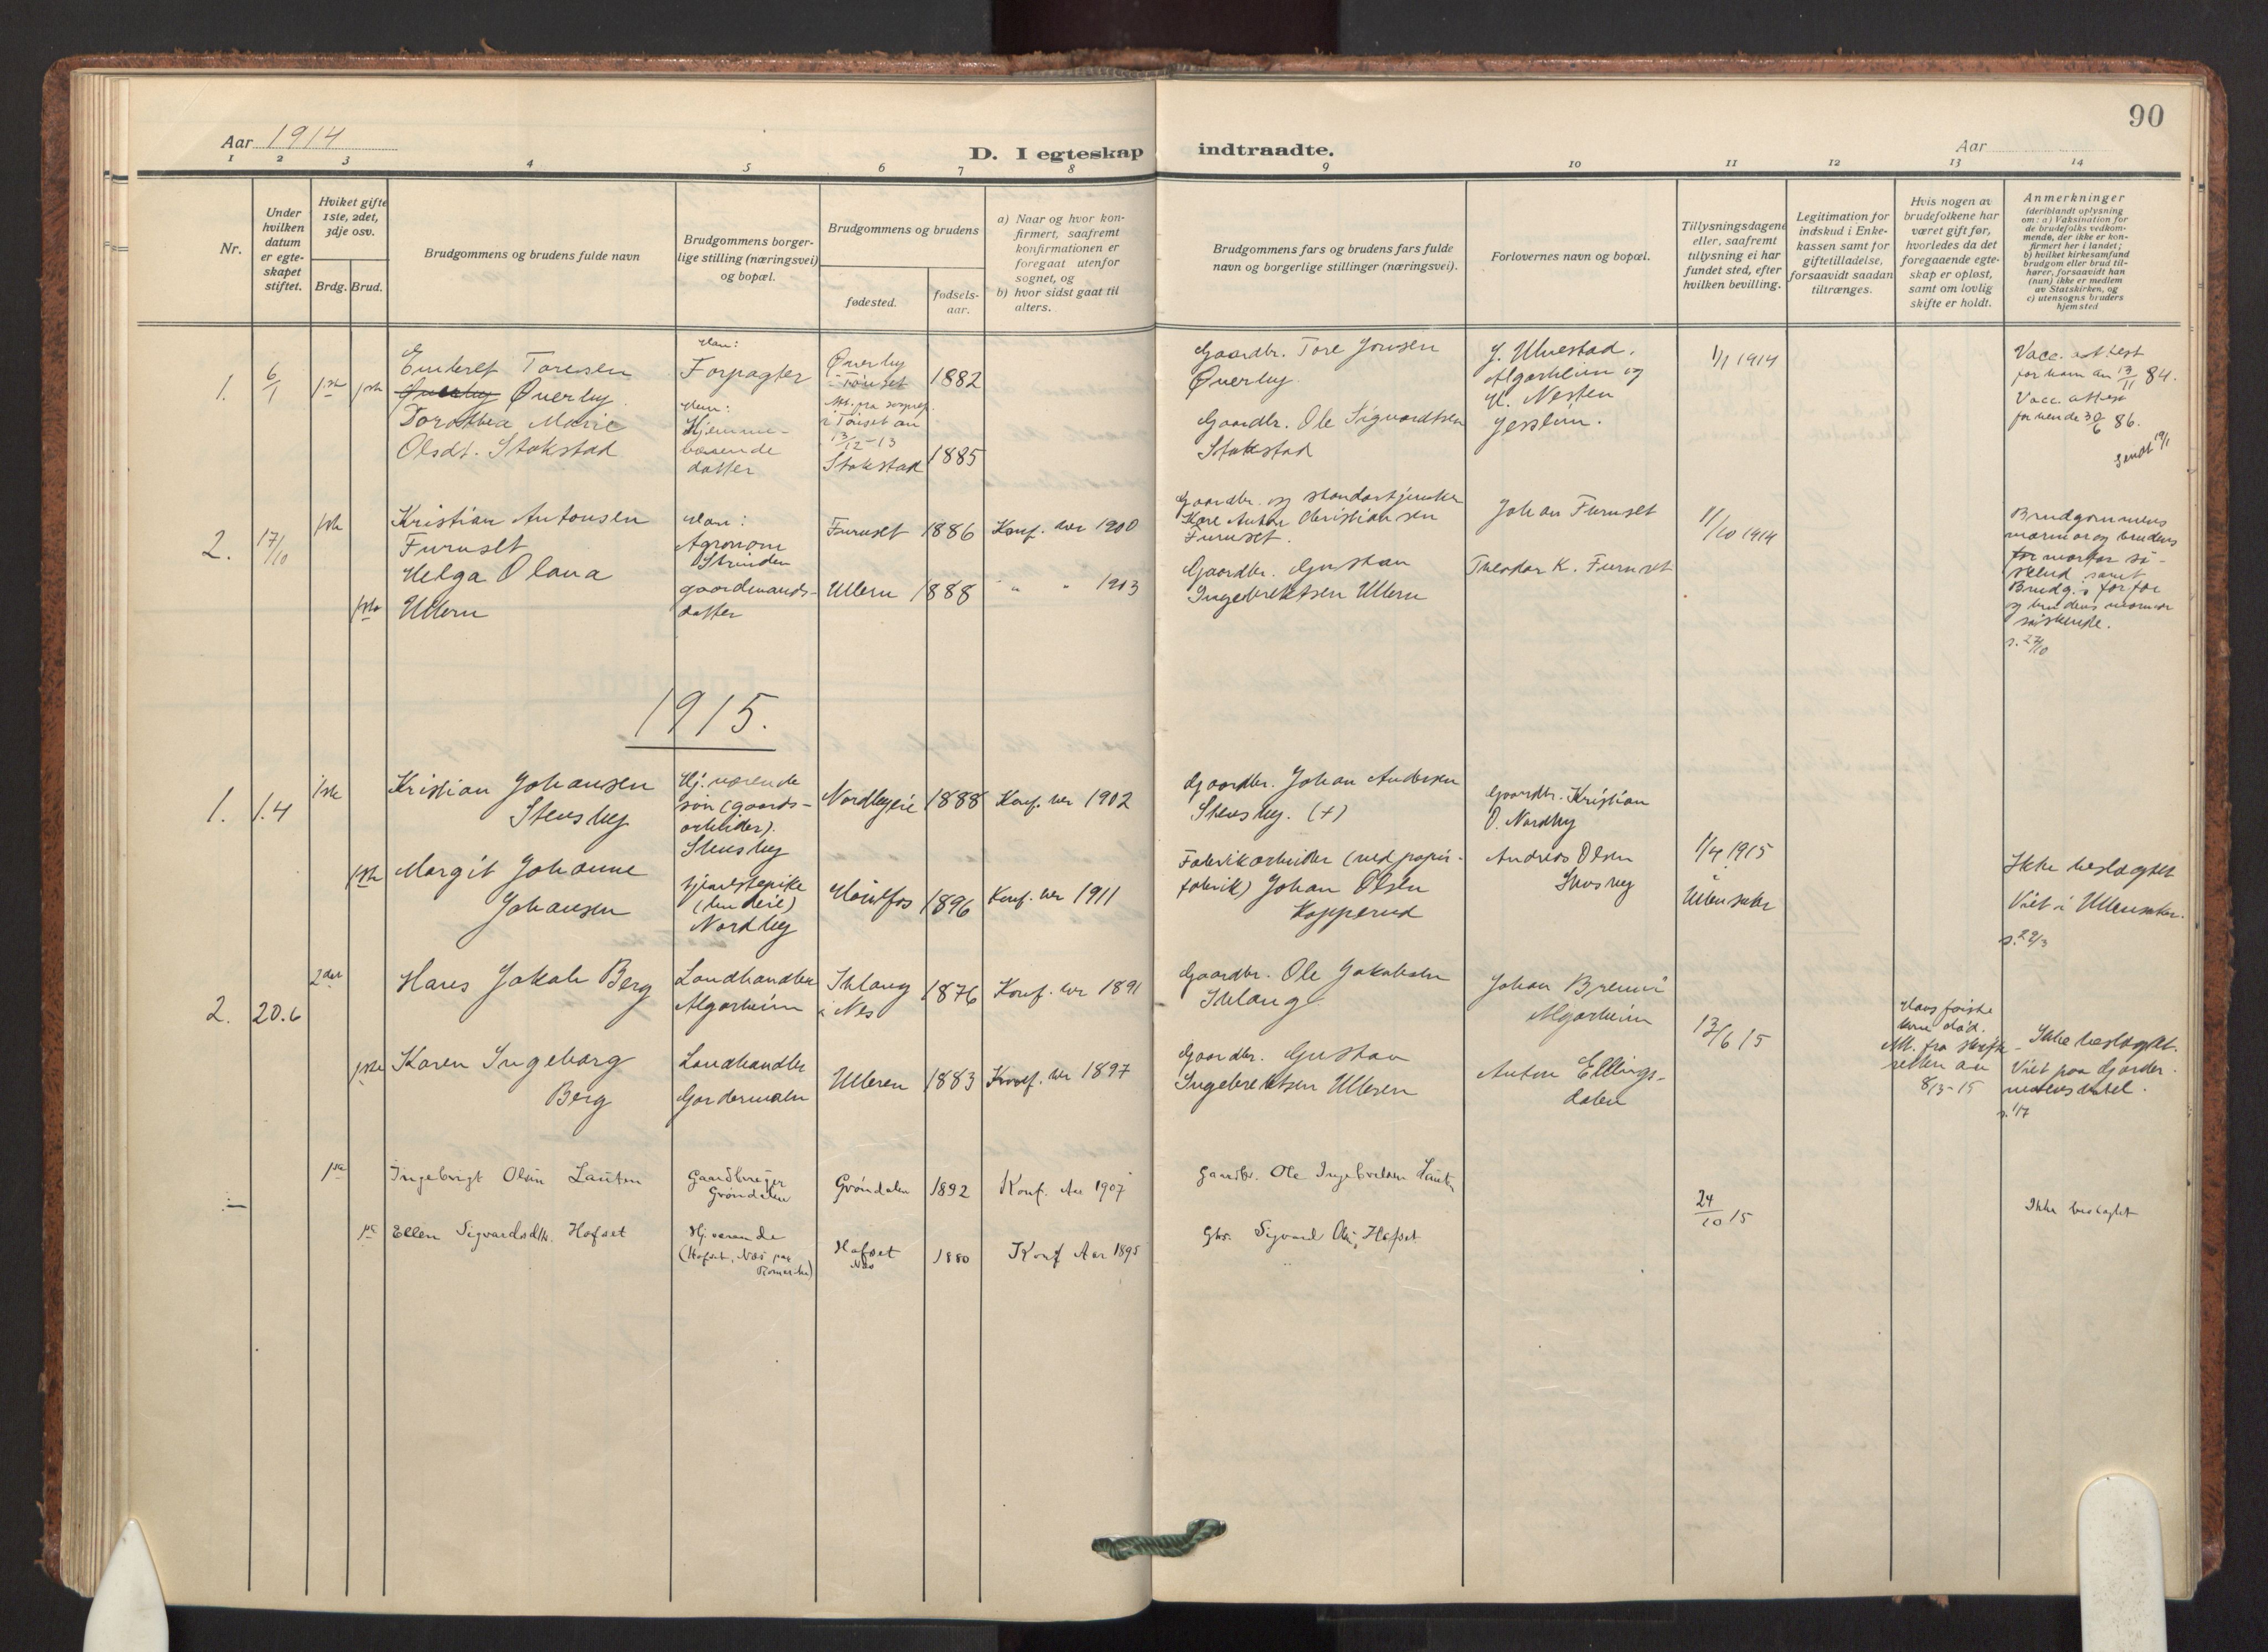 90
Aar 1914
D. I egteskap indtraadte.
Aar
1 2 3 4 5 6 7 8 9 10 11 12 13 14
Nr.
Under
hvilken
datum
er egte-
skapet
stiftet.
Hviket gifte
1ste, 2det,
3dje osv.
Brdg.
Brud.
Brudgommens og brudens fulde navn
Brudgommens borger-
lige stilling (næringsvei)
og bopæl.
Brudgommens og brudens
fødested.
fødsels-
aar.
a) Naar og hvor kon-
firmert, saafremt
konfirmationen er
foregaat utenfor
sognet, og
b) hvor sidst gaat til
alters.
Brudgommens fars og brudens fars fulde
navn og borgerlige stillinger (næringsvei).
Forlovernes navn og bopæl.
Tillysningsdagene
eller, saafremt
tillysning ei har
fundet sted, efter
hvilken bevilling.
Legitimation for
indskud i Enke-
kassen samt for
giftetilladelse,
forsaavidt saadan
tiltrænges.
Hvis nogen av
brudefolkene har
været gift før,
hvorledes da det
foregaaende egte-
skap er opløst,
samt om lovlig
skifte er holdt.
Anmerkninger
(deriblandt oplysning
om: a) Vaksination for
de brudefolks vedkom-
mende, der ikke er kon-
firmert her i landet;
b) hvilket kirkesamfund
brudgom eller brud til-
hører, forsaavidt han
(hun) ikke er medlem
av Statskirken, og
c) utensogns bruders
hjemsted
1.
6/1
1ste
1ste
Embret Toresen
Øverby Øverby
Dorothea Marie
Olsdt. Stokstad
Han:
Forpagter
Hun:
Hjemme-
værende
datter
Øverby
i Tønset
Att. fra sognepr.
i Tønset av
13/12-13
Stokstad
1882
1885
Gaardbr. Tore Jonsen
Øverby
Gaardbr. Ole Sigvardtsen
Stokstad
J. Ulvestad.
Algarheim og
H. Nesten
Jessheim.
1/1 1914
Vacc. attest
for ham av 13/11 84.
Vacc. attest
for hende 30/6 86.
Sendt 19/1
2.
17/10
1ste
1ste
Kristian Antonsen
Furuset
Helga Olava
Ullern
Han:
Agronom
Strinden
gaardmands-
datter
Furuset
Ullern
1886
1888
Konf. her 1900
" " 1903
Gaardbr. og
Kare Anton Christiansen
Furuset.
Gaardbr. Gustav
Ingebrektsen Ullern
Johan Furuset
Theodor K. Furuset
11/10 1914
Brudgommens
mormor og brudens
for morfar sø-
skend samt
Brudg.s farfar
og brudens mormor
søskende.
s. 27/10
1915.
1.
1.4
1ste
1ste
Kristian Johansen
Stensby
Margit Johanne
Johansen
Hj. værende
søn (gaards-
arbeider).
Stensby
tjenestepike
Nordby
Nordbyeie
Hønefos
1888
1896
Konf. her 1902
Konf. her 1911
Gaardbr. Johan Andersen
Stensby. (+)
Fabrikarbeider (ved papir-
fabrik) Johan Olsen
Kopperud
Gaardbr. Kristian
O. Nordby
Andreas Olsen
Stensby
1/4 1915
i
Ullensaker
Ikke beslægtet
Viet i Ullensaker.
s. 29/3
2.
20.6
2det
1ste
Hans Jakob Berg
Karen Ingeborg
Berg
Landhandler
Algarheim
Landhandler
Gardermoen
Ihlang
i Nes
Ulleren
1876
1883
Konf. her 1891
Konf. her 1897
Gaardbr. Ole Jakobsen
Ihlang
Gaardbr. Gustav
Ingebrektsen Ulleren
Johan Bremi
Algarheim
Anton Ellings-
dalen
13/6 15
Hans første
kone død.
Att. fra skifte-
retten av
8/3-15
Ikke beslægtet.
Viet paa Garder-
moens
s. 1/7
1ste
1ste
Ingebrigt Olsen Lauten
Ellen Sigvardsdtr. Hofset
Gaardbruger
Grøndalen
Hj. værende
(Hofset, Næs paa
Romerike)
Grøndalen
Hofset
Næs
1892
1880
Konf. Aar 1907
Konf Aar 1895
Gaardbr. Ole Ingebretsen Lauten
Gbr. Sigvard Ols. Hofset
24/10 15
Ikke beslægtet